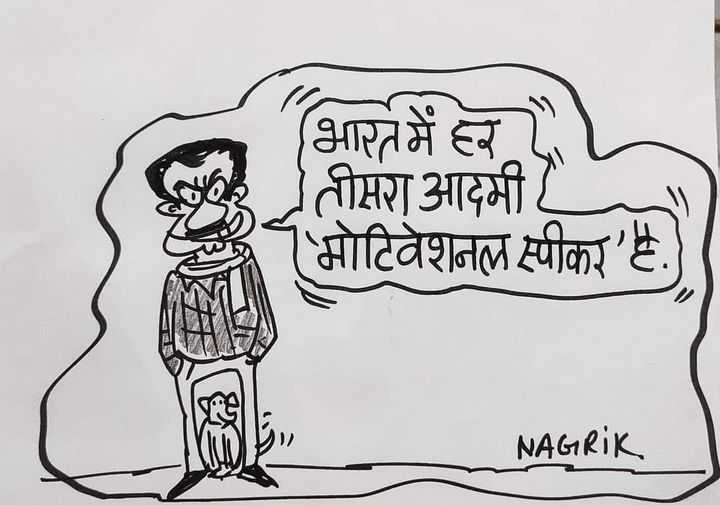 भारत में हर
तीसरा आदमी
'मोटिवेशनल स्पीकर' है.
NAGRIK